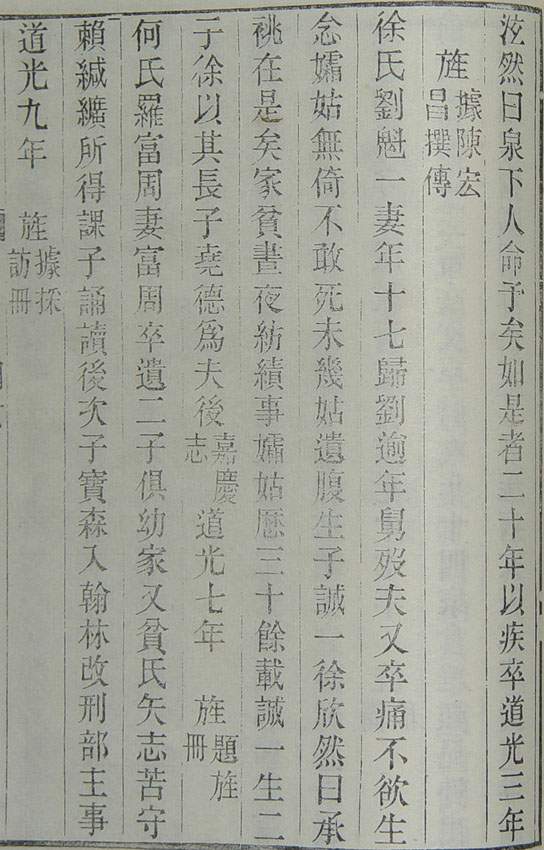 泫然曰泉下人命予矣如是者二十年以疾卒道光三年
旌據陳宏昌撰傳
徐氏劉魁一妻年十七歸劉逾年舅歿夫又卒痛不欲生
念孀姑無倚不敢死未幾姑遺腹生子誠一徐欣然曰承
祧在是矣家貧晝夜紡績事孀姑歷三十餘載誠一生二
子徐以其長子堯德為夫後嘉慶志道光七年 旌題旌冊
何氏羅富周妻富周卒遺二子俱幼家又貧氏矢志苦守
賴緘纊所得課子誦讀後次子寶森入翰林改刑部主事
道光九年 旌據採訪冊